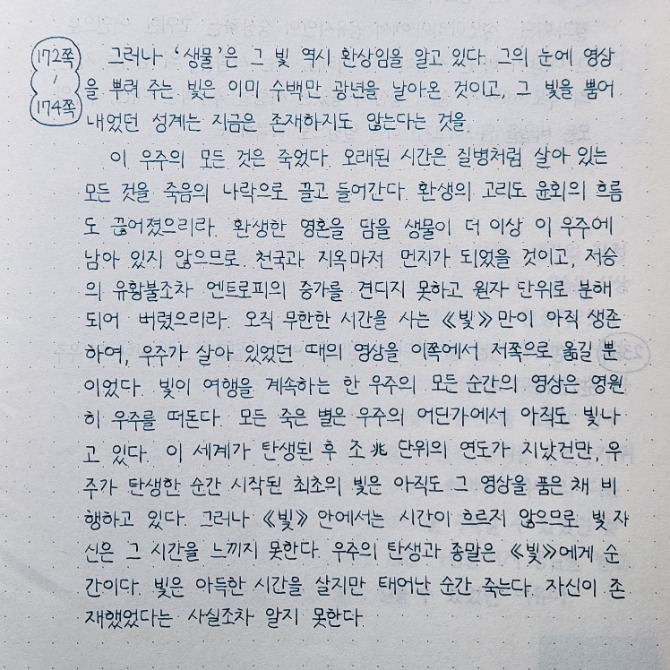 172쪽
~
174쪽
그러나 '생물'은 그 빛 역시 환상임을 알고 있다. 그의 눈에 영상
을 뿌려 주는 빛은 이미 수백만 광년을 날아온 것이고, 그 빛을 뿜어
내었던 성계는 지금은 존재하지도 않는다는 것을.
이 우주의 모든 것은 죽었다. 오래된 시간은 질병처럼 살아 있는
모든 것을 죽음의 나락으로 끌고 들어간다. 환생의 고리도 윤회의 흐름
도 끊어졌으리라. 환생한 영혼을 담을 생물이 더 이상 이 우주에
남아 있지 않으므로. 천국과 지옥마저 먼지가 되었을 것이고, 저승
의 유황불조차 엔트로피의 증가를 견디지 못하고 원자 단위로 분해
되어 버렸으리라. 오직 무한한 시간을 사는 《빛》만이 아직 생존
하여, 우주가 살아 있었던 때의 영상을 이쪽에서 저쪽으로 옮길 뿐
이었다. 빛이 여행을 계속하는 한 우주의 모든 순간의 영상은 영원
히 우주를 떠돈다. 모든 죽은 별은 우주의 어딘가에서 아직도 빛나
고 있다. 이 세계가 탄생된 후 조兆 단위의 연도가 지났건만, 우
주가 탄생한 순간 시작된 최초의 빛은 아직도 그 영상을 품은 채 비
행하고 있다. 그러나 《빛》 안에서는 시간이 흐르지 않으므로 빛 자
신은 그 시간을 느끼지 못한다. 우주의 탄생과 종말은 《빛》에게 순
간이다. 빛은 아득한 시간을 살지만 태어난 순간 죽는다. 자신이 존
재했었다는 사실조차 알지 못한다.